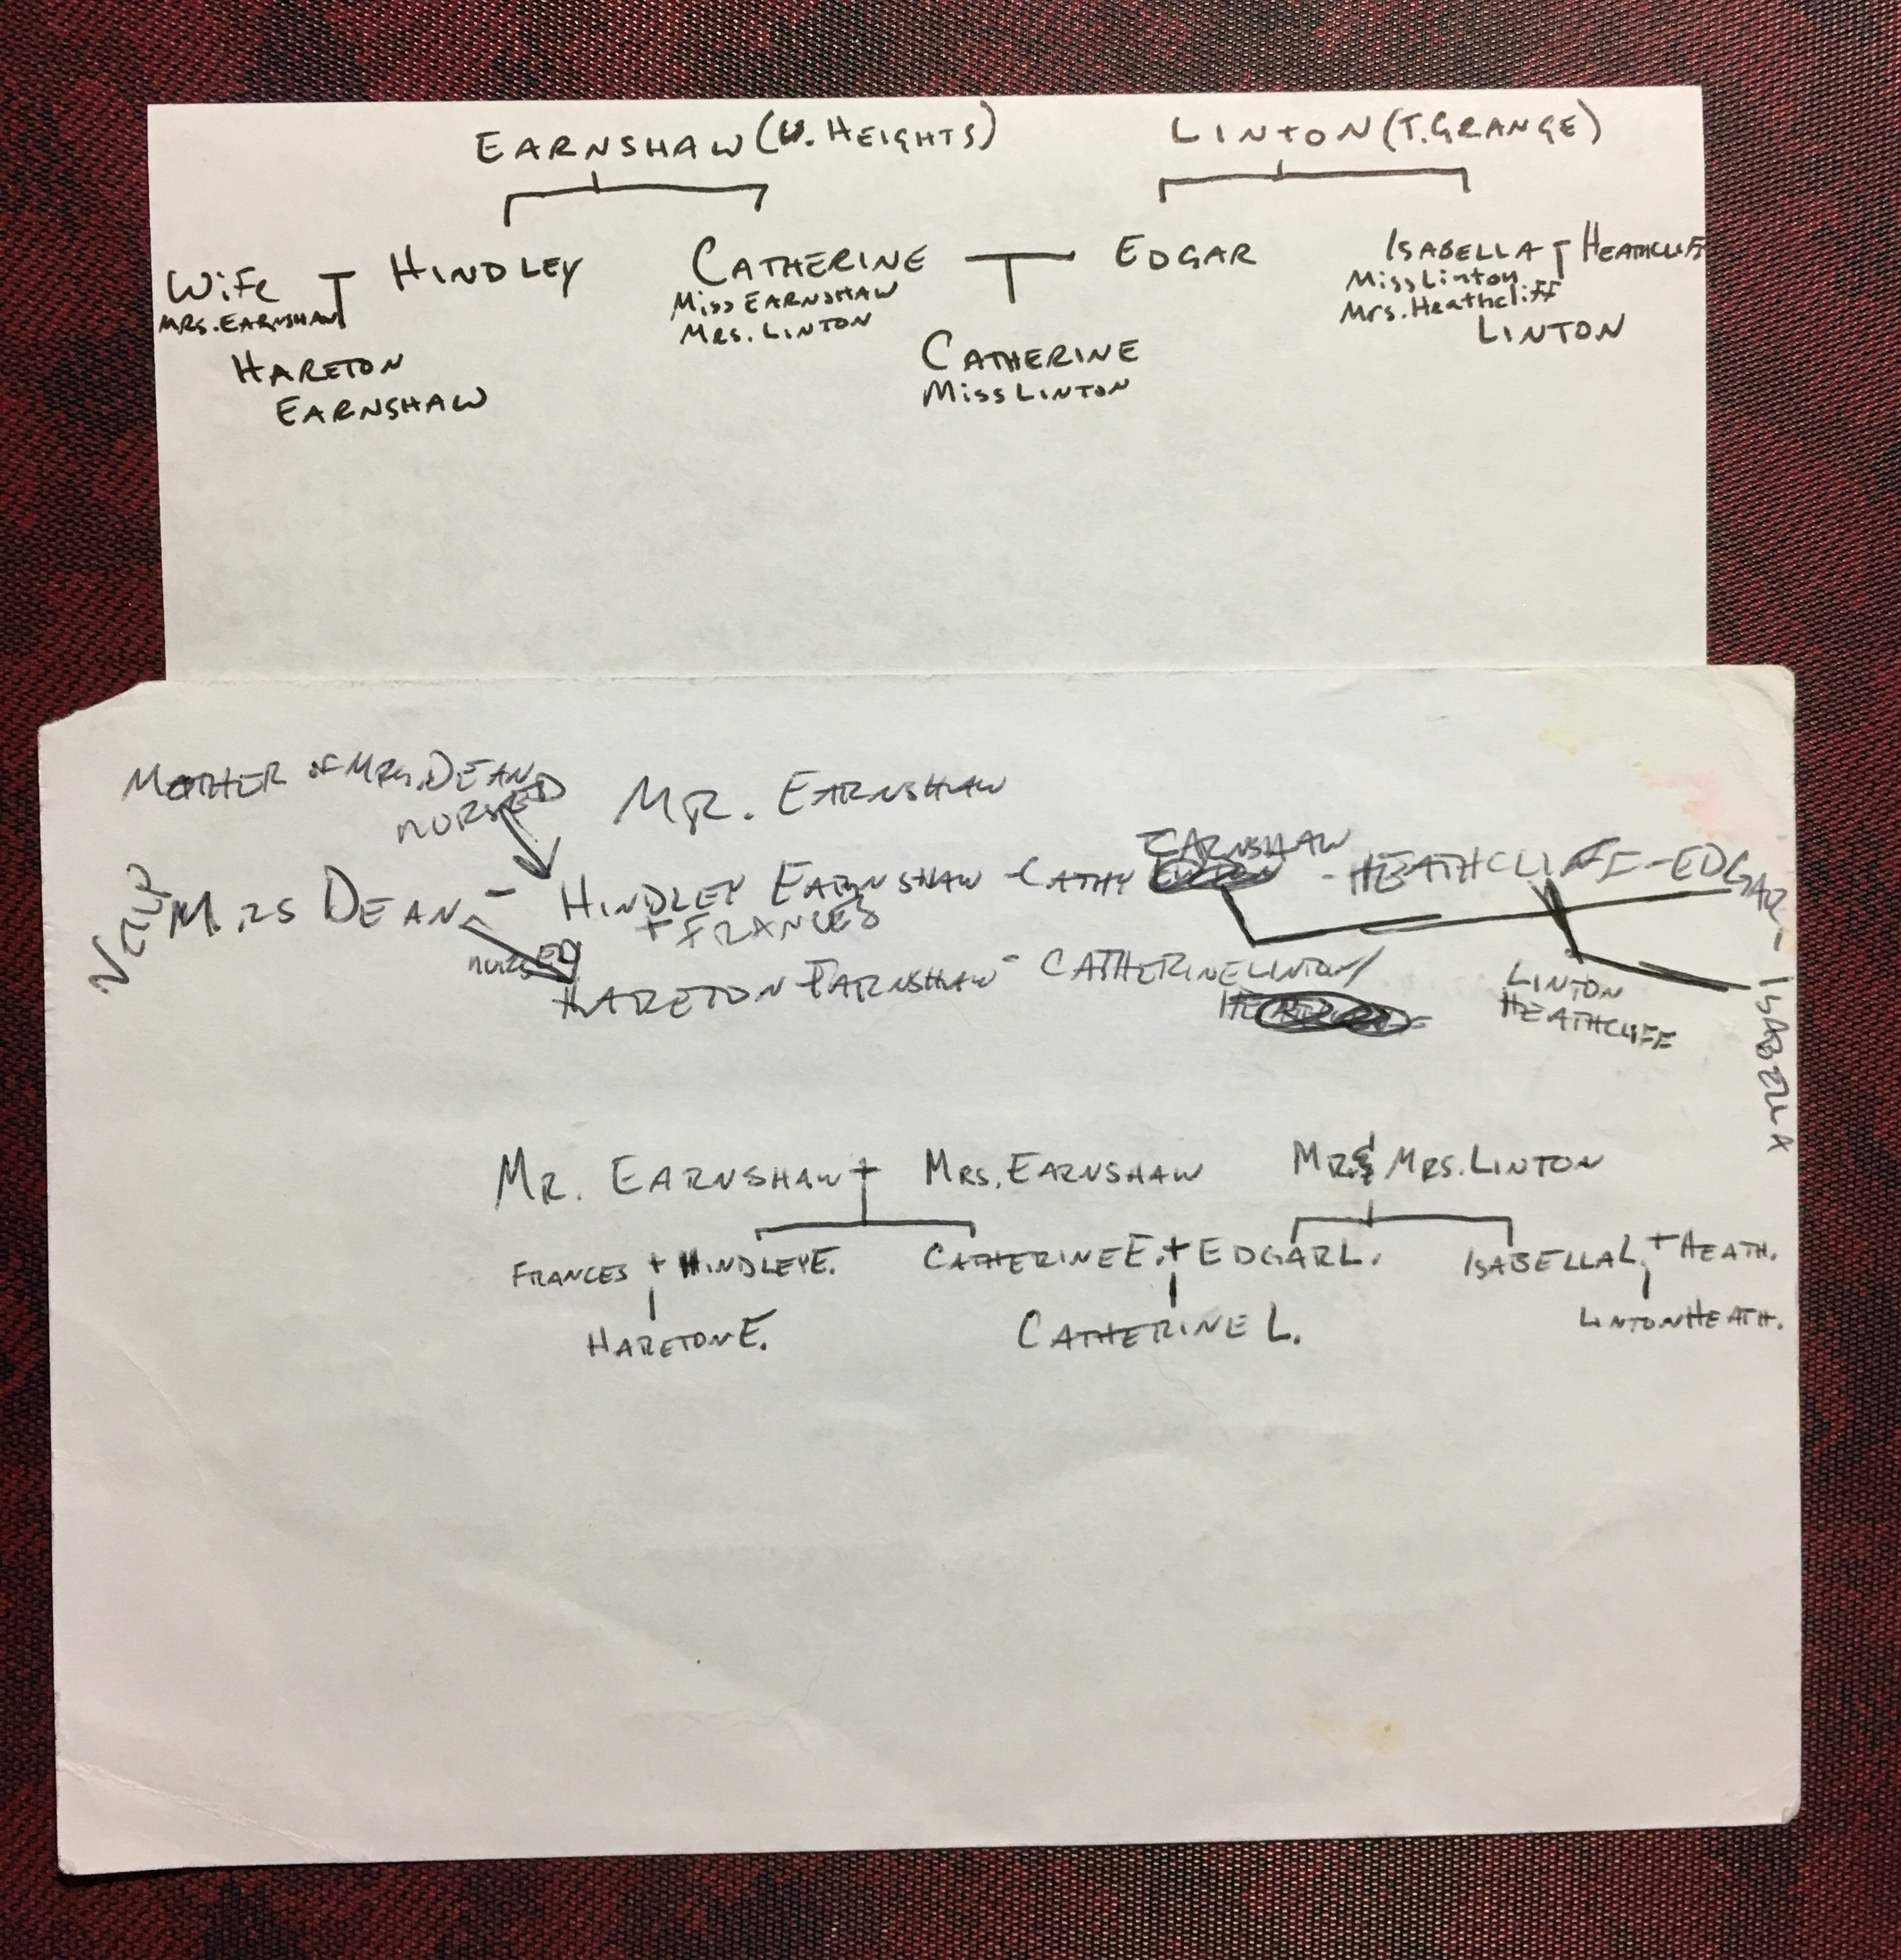 EARNSHAW (W. HEIGHTS) LINTON (T. GRANGE)
WiFE HINDLEY CATHERINE EDGAR ISABELLA HEATHCLIFF
MRS. EARNSHAW Miss EARNSHAW Miss Linton
MRS. LINTON Mrs. Heathcliff
HARETON CATHERINE LINTON
EARNSHAW Miss LINTON
MOTHER OF MRS. DEAN
NURSED MR. EARNSHAW
NELLY MRS DEAN - HINDLEY EARNSHAW - CATHY EARNSHAW - HEATHCLIFF - EDGAR - ISABELLA
+ FRANCES
NURSED HARETON EARNSHAW - CATHERINE LINTON/ LINTON
HEATHCLIFF
MR. EARNSHAW + MRS. EARNSHAW MR. & MRS. LINTON
FRANCES + HINDLEY E. CATHERINE E. + EDGAR L. ISABELLA L. + HEATH.
HARETON E. CATHERINE L. LINTON HEATH.